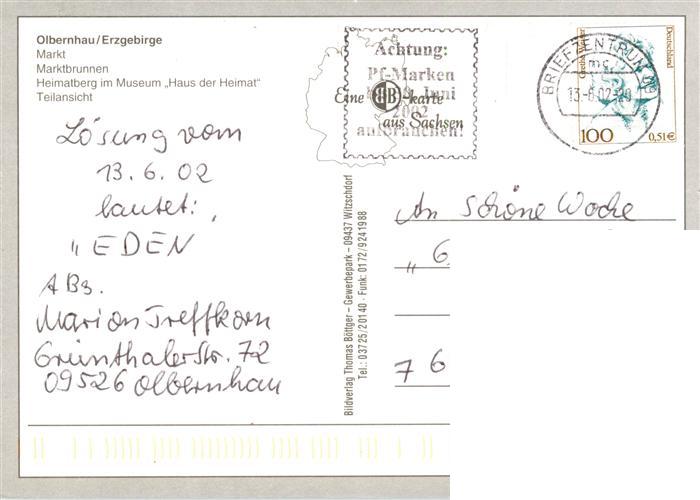 Olbernhau/Erzgebirge
Markt
Marktbrunnen
Heimatberg im Museum „Haus der Heimat“
Teilansicht
Achtung:
Pf-Marken
Juni
2002
aufbrauchen!
Eine BB-karte
aus Sachsen
BRIEFZENTRUM 09
mc
13.-6.02-20
Deutschland
100 0,51€
Lösung vom
13.6.02
lautet:
„EDEN
ABs.
Marion Treffkorn
Grünthalerstr. 72
09526 Olbernhau
Bildverlag Thomas Böttger – Gewerbepark – 09437 Witzschdorf
Tel.: 03725/20140 · Funk: 0172/9241988
An Schöne Woche
„ 6
7 6